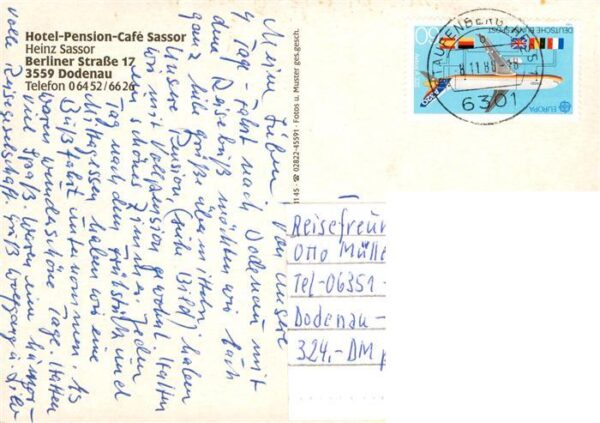 Hotel-Pension-Café Sassor
Heinz Sassor
Berliner Straße 17
3559 Dodenau
Telefon 06452/6626
Meine Lieben! Von unsere
4 Tag-Fahrt nach Dodenau mit
dem Reisebüß möchten wir Euch
ganz lieb grüße übermitteln.
Unsere Pension, (siehe Bild) haben
wir mit Vollpension gewohnt. Hatten
ein schönes Zimmer. Jeden
Tag nach dem Frühstück und
Mittagessen haben wir eine
Bußfahrt unternommen. Es
waren wunderschöne Tage. Hatten
viel Spaß. Waren eine humor-
volle Reisegesellschaft. Gruß Wolfgang u.
02822-45591 · Fotos u. Muster ges.gesch.
60
DEUTSCHE BUNDESPOST
EUROPA
LAUTENBERG
11.88
6301
Reisefreun
Otto Mülle
Tel-06351-
Dodenau-
324,-DM